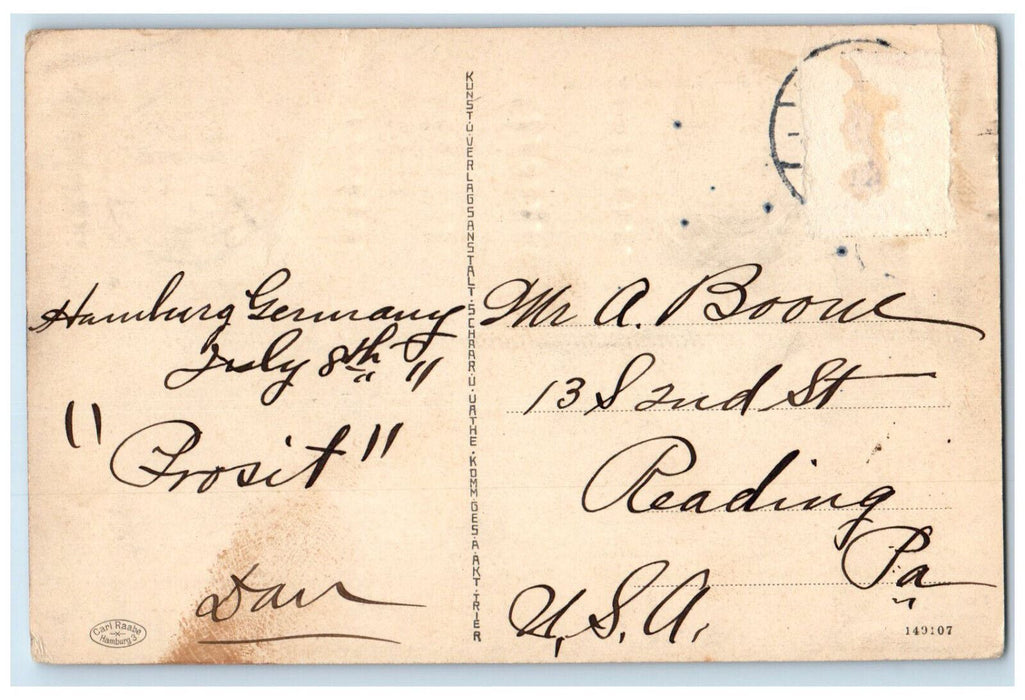 Hamburg Germany
July 8th "
"Prosit"
Dan
Carl Raabe
Hamburg 3
KUNST-U-VERLAGSANSTALT-SCHAAR-U-DATHE-KOMM-GES-A-AKT-TRIER
Mr A. Boone
13 S 2nd St
Reading
Pa
U.S.A.
149107